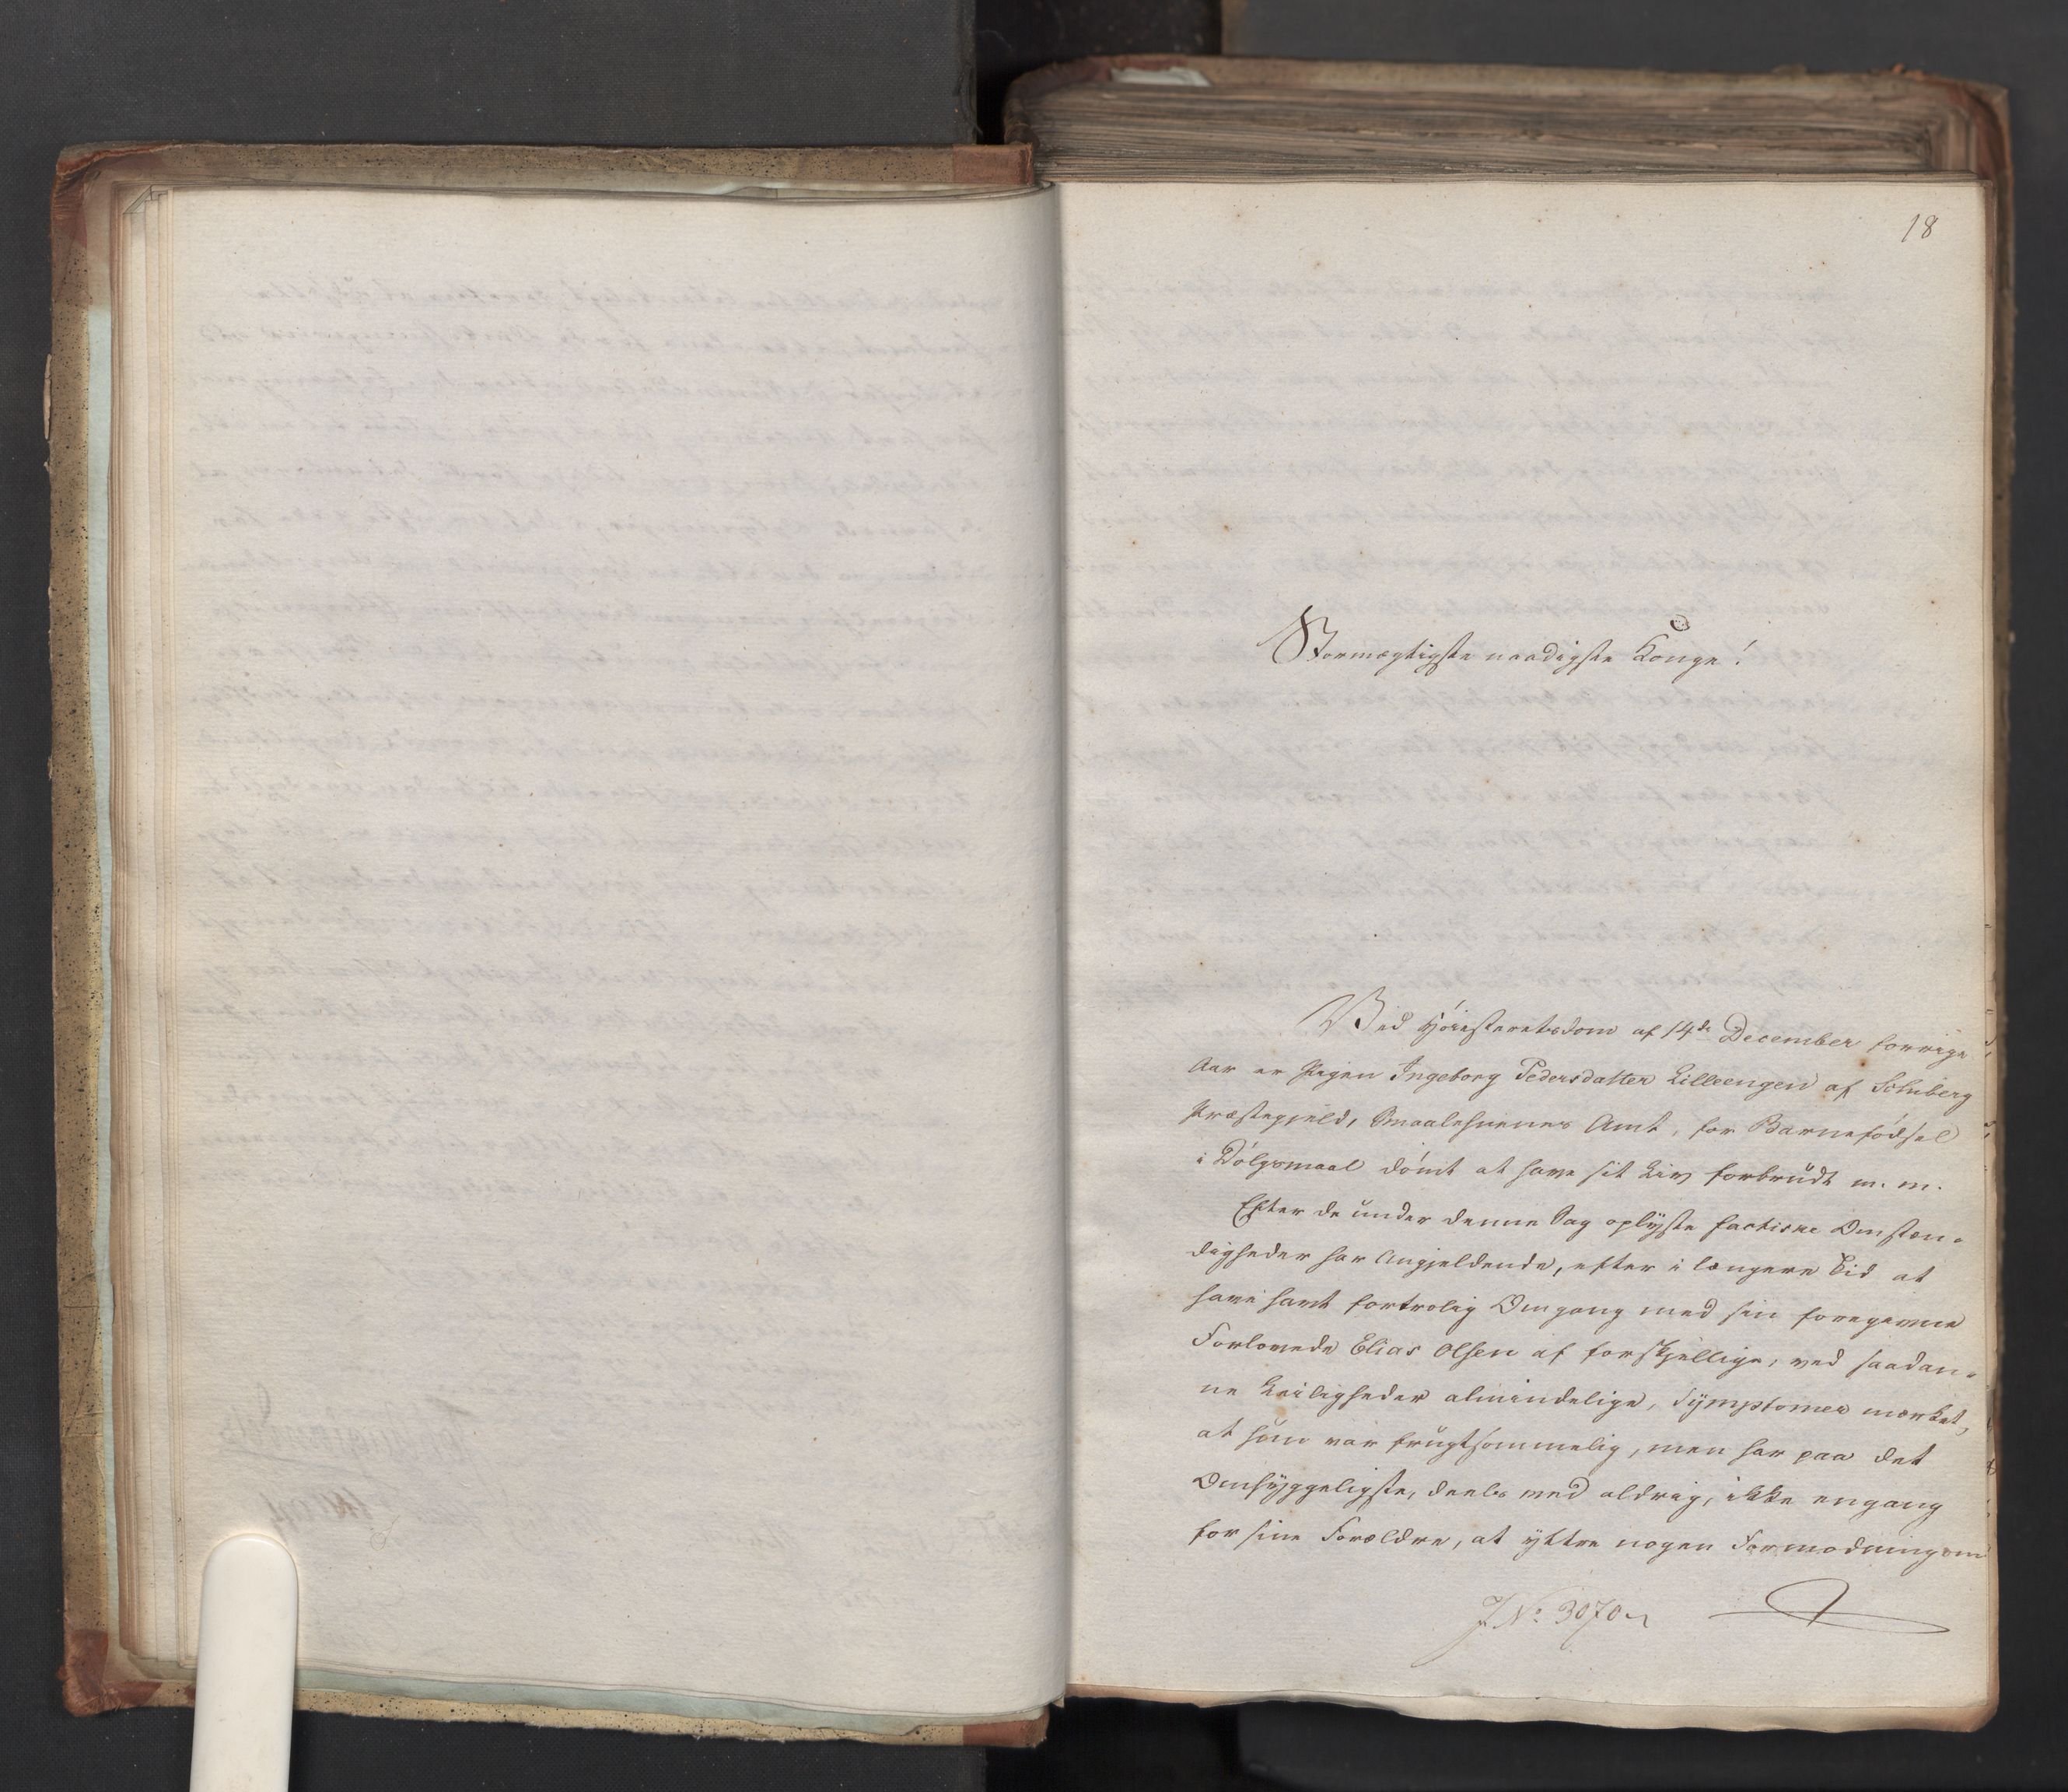 18
Stormægtigste naadigste Konge!
Ved Höiesteretsdom af 14de December forrige
Aar er Pigen Ingeborg Pedersdatter Lilleengen af
Præstegjeld, Smaalehnenes Amt, for Barnefödsel
i Dölgsmaal dömt at have sit Liv forbrudt m. m.
Efter de under denne Sag oplyste factiske Omstæn-
digheder har Angjeldende, efter i længere Tid at
have havt fortrolig Omgang med sin foregivne
Forlovede Elias Olsen af forskjellige, ved saadan-
ne Leiligheder almindelige, Symptomer mærket,
at hun var frugtsommelig, men har paa det
Omhyggeligste, deels ved aldrig, ikke engang
for sine Forældre, at yttre nogen Formodning om
J. No. 3070